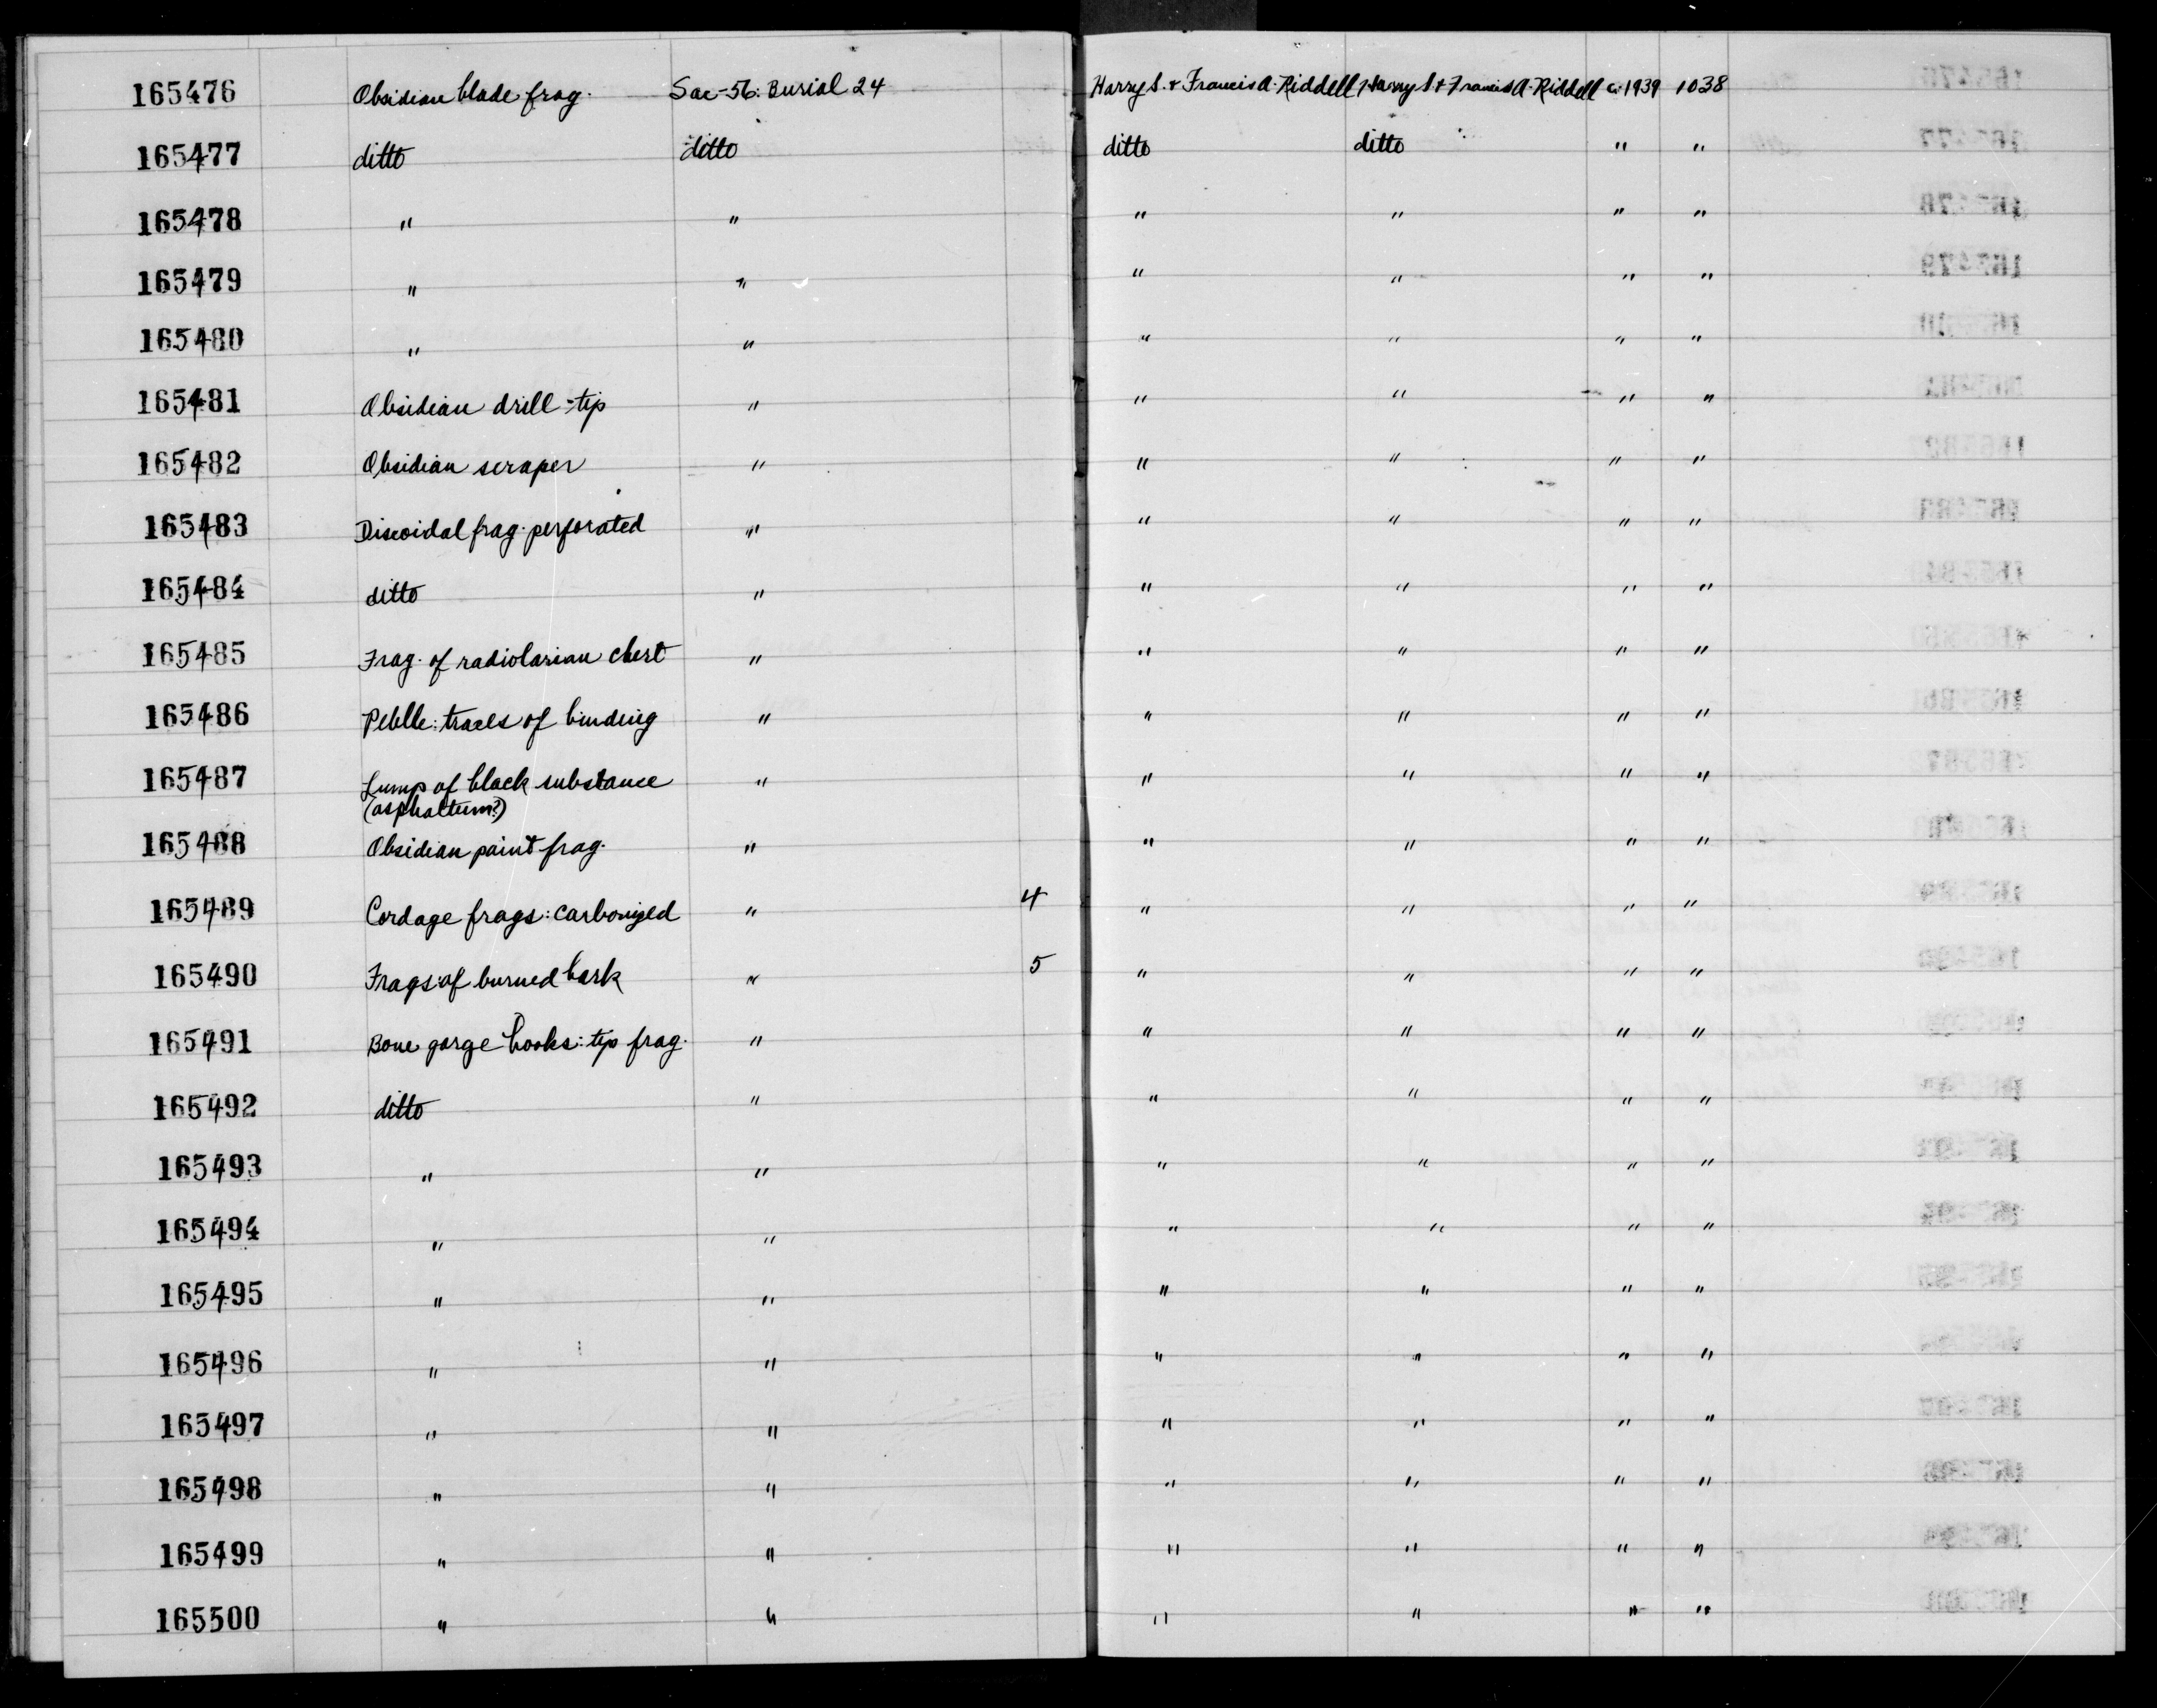 165476 Obsidian blade frag. Sac-56: Burial 24 Harry S. & Francis A. Riddell Harry S. & Francis A. Riddell c. 1939 1038
165477 ditto ditto ditto ditto " "
165478 " " " " " "
165479 " " " " " "
165480 " " " " " "
165481 Obsidian drill-tip " " " " "
165482 Obsidian scraper " " " " "
165483 Discoidal frag. perforated " " " " "
165484 ditto " " " " "
165485 Frag. of radiolarian chert " " " " "
165486 Pebble: traces of binding " " " " "
165487 Lump of black substance " " " " "
(asphaltum?)
165488 Obsidian point frag. " " " " "
165489 Cordage frags: carbonized " 4 " " " "
165490 Frags of burned bark " 5 " " " "
165491 Bone gorge hooks: tip frag. " " " " "
165492 ditto " " " " "
165493 " " " " " "
165494 " " " " " "
165495 " " " " " "
165496 " " " " " "
165497 " " " " " "
165498 " " " " " "
165499 " " " " " "
165500 " " " " " "